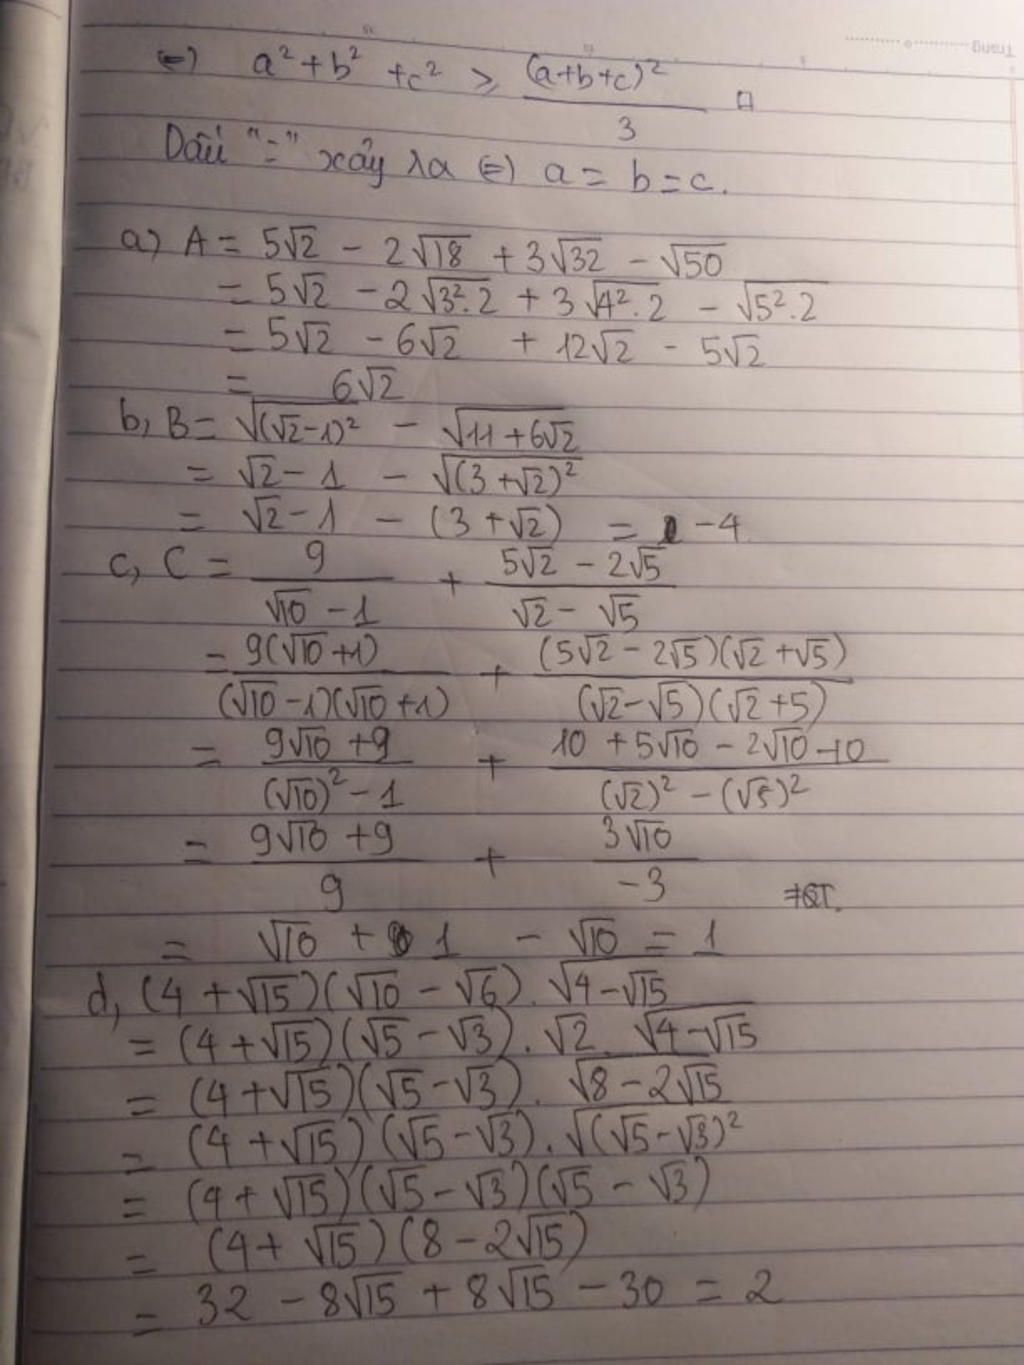 ⇔ a² + b² + c² ≥ (a+b+c)² / 3 □
Dấu "=" xảy ra ⇔ a = b = c.
a) A = 5√2 - 2√18 + 3√32 - √50
= 5√2 - 2√(3².2) + 3√(4².2) - √(5².2)
= 5√2 - 6√2 + 12√2 - 5√2
= 6√2
b, B = √((√2-1)²) - √(11+6√2)
= √2 - 1 - √((3+√2)²)
= √2 - 1 - (3+√2) = -4
c, C = 9/(√10 - 1) + (5√2 - 2√5)/(√2 - √5)
= 9(√10+1)/((√10-1)(√10+1)) + (5√2 - 2√5)(√2+√5)/((√2-√5)(√2+5))
= (9√10 + 9)/((√10)² - 1) + (10 + 5√10 - 2√10 - 10)/((√2)² - (√5)²)
= (9√10 + 9)/9 + 3√10/(-3)
= √10 + 1 - √10 = 1
d, (4 + √15)(√10 - √6).√(4-√15)
= (4+√15)(√5-√3).√2.√(4-√15)
= (4+√15)(√5-√3).√(8-2√15)
= (4+√15)(√5-√3).√((√5-√3)²)
= (4+√15)(√5-√3)(√5-√3)
= (4+√15)(8-2√15)
= 32 - 8√15 + 8√15 - 30 = 2